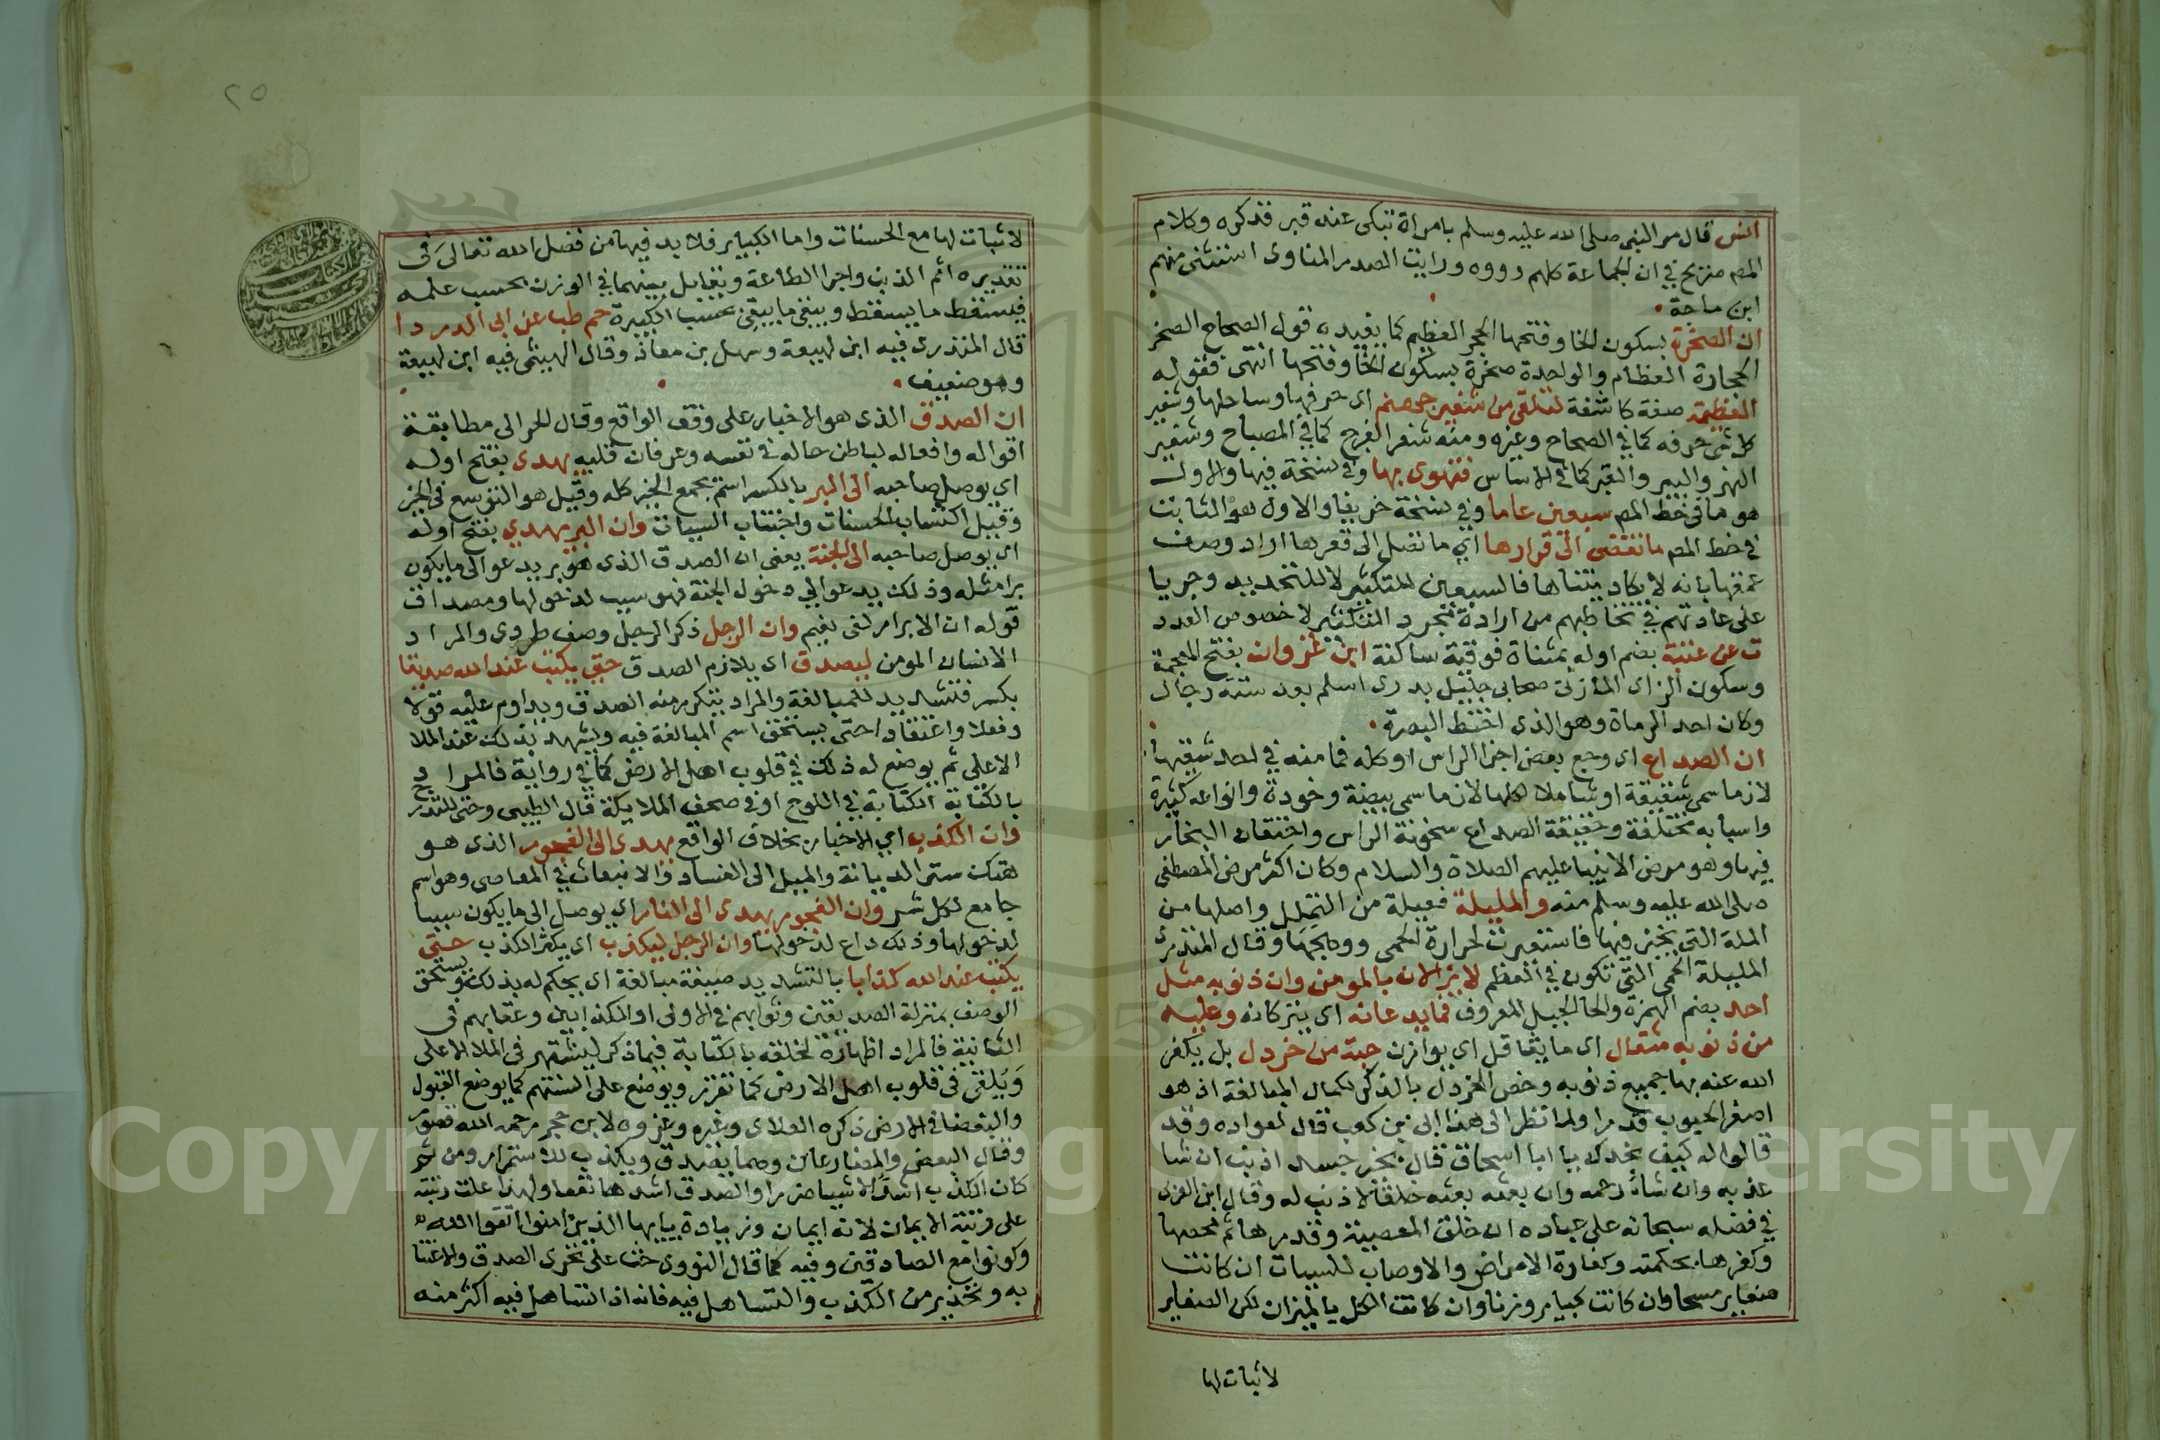 انس قال مر النبي صلى الله عليه وسلم بامراة تبكى عند قبر فذكره وكلام
المص صريح في ان الجماعة كلهم رووه ورايت الصدر المناوى استثنى منهم
ابن ماجة
ان الصخرة بسكون الخا وفتحها الحجر العظيم كما يفيده قول الصحاح الصخر
الحجارة العظام والواحدة صخرة بسكون الخا وفتحها انتهى فقوله
العظيمة صفة كاشفة لتلقى من شفير جهنم اى حرفها وساحلها وشفير
كل شى حرفه كما في الصحاح وغيره ومنه شفر الفرج كما في المصباح وشفير
النهر والبير والقبر كما في الاساس فتهوى بها وفي نسخة فيها والاول
هو ما في خط المص سبعين عاما وفي نسخة خريفا والاول هو الثابت
في خط المص ما تفضى الى قرارها اي ما تصل الى قعرها اراد وصف
عمقها بانه لا يكاد يتناها فالسبعين للتكثير لا للتحديد وجريا
على عادتهم في تخاطبهم من ارادة مجرد التكثير لا خصوص العدد
ت عن عتبة بضم اوله بمثناة فوقية ساكنة ابن غزوان بفتح المعجمة
وسكون الزاى المازنى صحابى جليل بدرى اسلم بعد ستة رجال
وكان احد الرماة وهو الذى اختط البصرة
ان الصداع اى وجع بعض اجزا الراس او كله فما منه في احد شقيها
لازما سمى شقيقة او شاملا لكلها لازما سمى بيضة وخودة وانواعه كثيرة
واسبابه مختلفة وحقيقة الصداع سخونة الراس واحتقان البخار
فيها وهو مرض الانبيا عليهم الصلاة والسلام وكان اكثر مرض المصطفى
صلى الله عليه وسلم منه والمليلة فعيلة من التملل واصلها من
الملة التى يخبز فيها فاستعيرت لحرارة الحمى ووهجها وقال المنذرى
المليلة الحمى التى تكون في العظم لا يزالان بالمومن وان ذنوبه مثل
احد بضم الهمزة والحا الجبل المعروف فما يدعانه اى يتركانه وعليه
من ذنوبه مثقال اى ما يثاقل اى يوازن حبة من خردل بل يكفر
الله عنه بها جميع ذنوبه وخص الخردل بالذكر لكمال المبالغة اذ هو
اصغر الحبوب قدرا ولما نظر الى هذا ابى بن كعب قال لعواده وقد
قالوا له كيف نجدك يا ابا اسحاق قال بخير جسد اذنب ان شا
عذبه وان شا رحمه وان بعثه بعثه خلقا لا ذنب له وقال ابن العربى
في فضله سبحانه على عباده ان خلق المعصية وقدرها ثم محصها
وكفرها بحكمته وكفارة الامراض والاوصاب للسيات ان كانت
صغاير مسحا وان كانت كباير وزنا وان كانت الكل بالميزان لكن الصغاير
لا ثبات لها
٢٥
لا ثبات لها مع الحسنات واما الكباير فلا بد فيها من فضل الله تعالى فى
تقديره اثم الذنب واجر الطاعة ويقابل بينهما في الوزن بحسب علمه
فيسقط ما يسقط ويبقى ما يبقى بحسب الكبيرة حم طب عن ابى الدردا
قال المنذرى فيه ابن لهيعة وسهل بن معاذ وقال الهيثمى فيه ابن لهيعة
وهو ضعيف
ان الصدق الذى هو الاخبار على وفق الواقع وقال الحرالى مطابقة
اقواله وافعاله لباطن حاله في نفسه وعرفان قلبه يهدى بفتح اوله
اي يوصل صاحبه الى البر بالكسر اسم يجمع الخير كله وقيل هو التوسع فى الخير
وقيل اكتساب الحسنات واجتناب السيات وان البر يهدي بفتح اوله
اى يوصل صاحبه الى الجنة يعنى ان الصدق الذى هو بر يدعو الى ما يكون
برا مثله وذلك يدعو الى دخول الجنة فهو سبب لدخولها ومصداق
قوله ان الابرار لفى نعيم وان الرجل ذكر الرجل وصف طردى والمراد
الانسان المومن ليصدق اى يلازم الصدق حتى يكتب عند الله صديقا
بكسر فتشديد للمبالغة والمراد يتكرر منه الصدق ويداوم عليه قولا
وفعلا واعتقادا حتى يستحق اسم المبالغة فيه ويشهد بذلك عند الملا
الاعلى ثم يوضع له ذلك في قلوب اهل الارض كما في رواية فالمراد
بالكتابة الكتابة في اللوح او في صحف الملايكة قال الطيبى وحتى للتدرج
وان الكذب اي الاخبار بخلاف الواقع يهدى الى الفجور الذى هو
هتك ستر الديانة والميل الى الفساد والانبعاث في المعاصى وهو اسم
جامع لكل شر وان الفجور يهدى الى النار اي يوصل الى ما يكون سببا
لدخولها وذلك داع لدخولها وان الرجل ليكذب اى يكثر الكذب حتى
يكتب عند الله كذابا بالتشديد صيغة مبالغة اى يحكم له بذلك ويستحق
الوصف بمنزلة الصديقين وثوابهم في الاولى او الكذابين وعقابهم فى
الثانية فالمراد اظهاره لخلقه بالكتابة فيما ذكر ليشتهر فى الملا الاعلى
ويلقى فى قلوب اهل الارض كما تقرر ويوضع على السنتهم كما يوضع القبول
والبغضا في الارض ذكره العلاى وغيره وعزوه لابن حجر رحمه الله قصور
وقال البعض والمضارعان وهما يصدق ويكذب للاستمرار ومن ثم
كان الكذب اشد الاشيا ضررا والصدق اشدها نفعا ولهذا علت رتبته
على رتبة الايمان لانه ايمان وزيادة يايها الذين امنوا اتقوا الله
وكونوا مع الصادقين وفيه كما قال النووى حث على تحرى الصدق والاعتنا
به وتحذير من الكذب والتساهل فيه فانه اذا تساهل فيه اكثر منه
Copyright © King Saud University